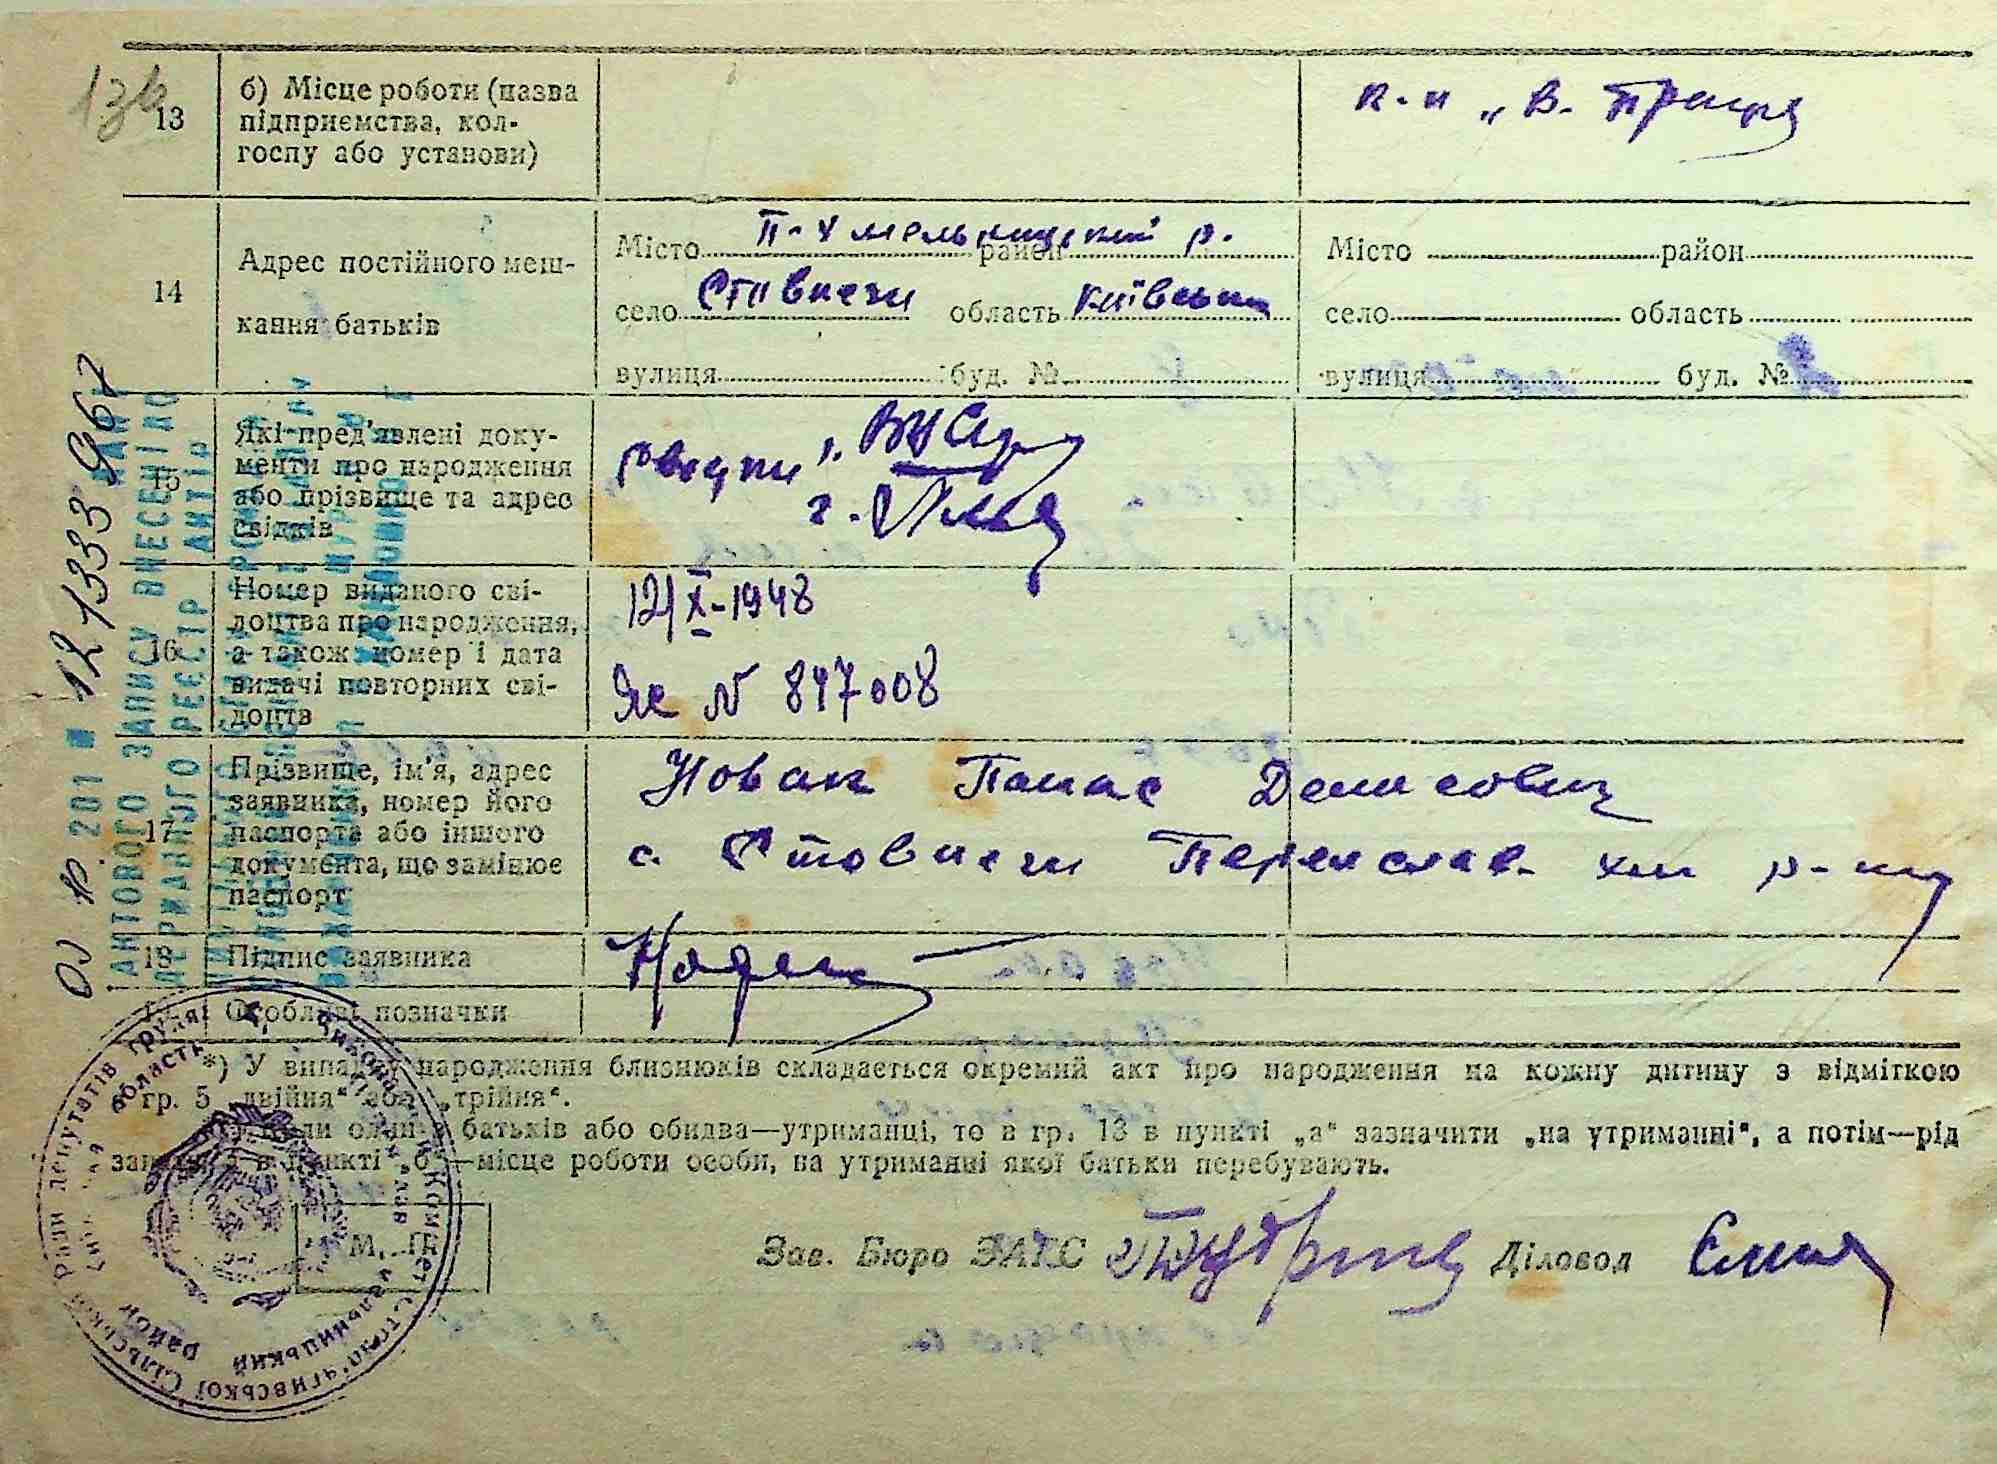 13
б) Місце роботи (назва
підприємства, кол-
госпу або установи)
к-п „В. Праця
14
Адрес постійного меш-
кання батьків
Місто П-Хмельницький район р.
село Стовпяги область Київська
вулиця буд. №
Місто район
село область
вулиця буд. №
15
Які пред'явлені доку-
менти про народження
або прізвище та адрес
свідків
16
Номер виданого сві-
доцтва про народження,
а також номер і дата
видачі повторних сві-
доцтв
12/X-1948
ЯЄ N 847008
17
Прізвище, ім'я, адрес
заявника, номер його
паспорта або іншого
документа, що замінює
паспорт
Новак Панас Денисович
с. Стовпяги Переяслав. хм р-ну
18
Підпис заявника
Новак
Особливі позначки
*) У випадку народження близнюків складається окремий акт про народження на кожну дитину з відміткою
гр. 5 „двійня“ або „трійня“.
Коли один з батьків або обидва—утриманці, то в гр. 13 в пункті „а“ зазначити „на утриманні“, а потім—рід
занять, в пункті „б“—місце роботи особи, на утриманні якої батьки перебувають.
М. П.
Зав. Бюро ЗАГС
Діловод
201
АКТОВОГО ЗАПИСУ ВНЕСЕНІ ДО
ДЕРЖАВНОГО РЕЄСТР АКТІВ
12133396